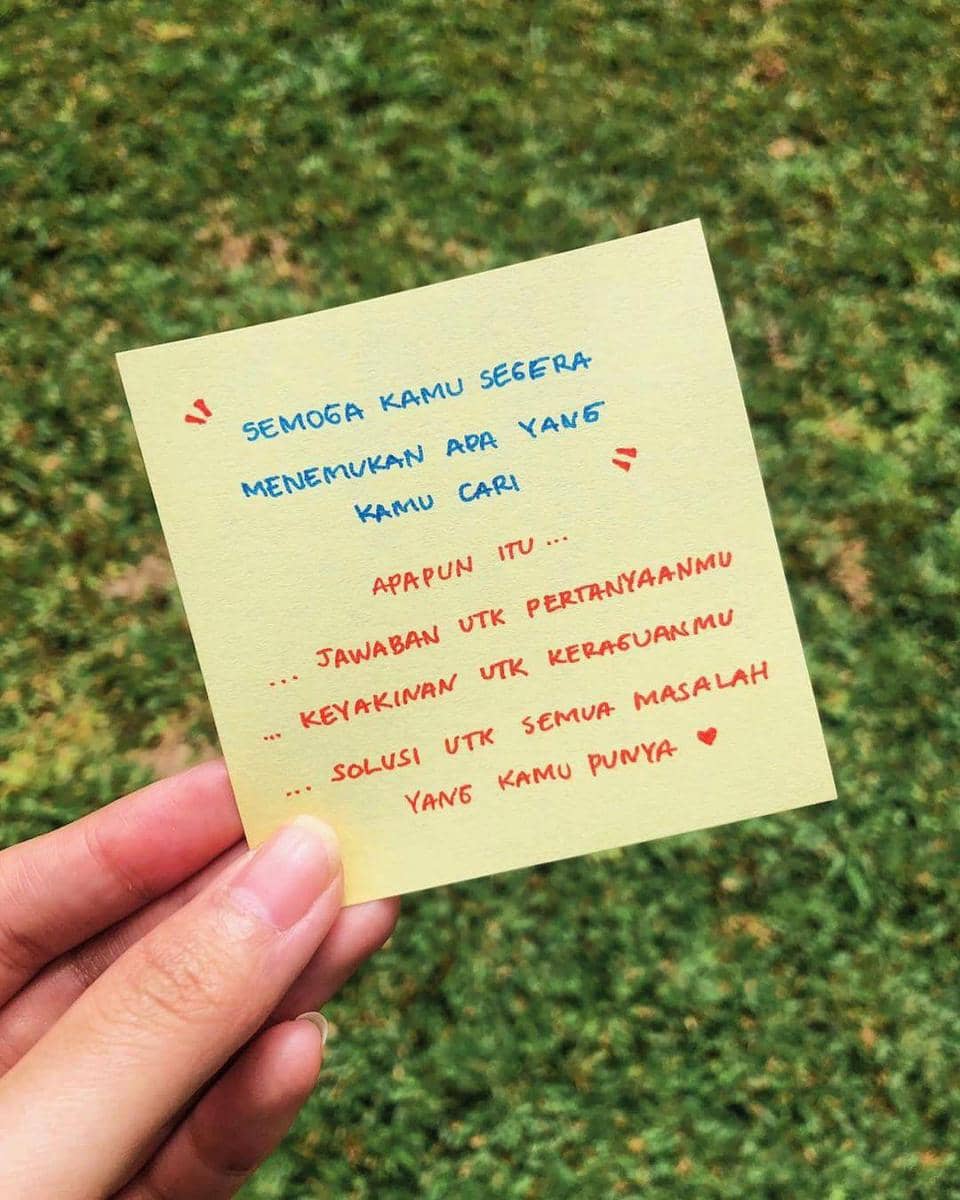 SEMOGA KAMU SEGERA
MENEMUKAN APA YANG
KAMU CARI
APAPUN ITU ...
... JAWABAN UTK PERTANYAANMU
... KEYAKINAN UTK KERAGUANMU
... SOLUSI UTK SEMUA MASALAH
YANG KAMU PUNYA ♥